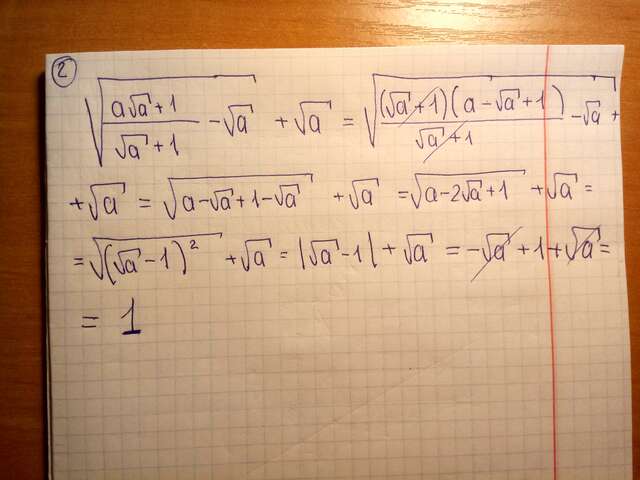 ②
√((a√a+1)/(√a+1) - √a) + √a = √((√a+1)(a-√a+1)/(√a+1) - √a) +
+√a = √(a-√a+1-√a) + √a = √(a-2√a+1) + √a =
= √((√a-1)²) + √a = |√a-1| + √a = -√a+1+√a =
= 1